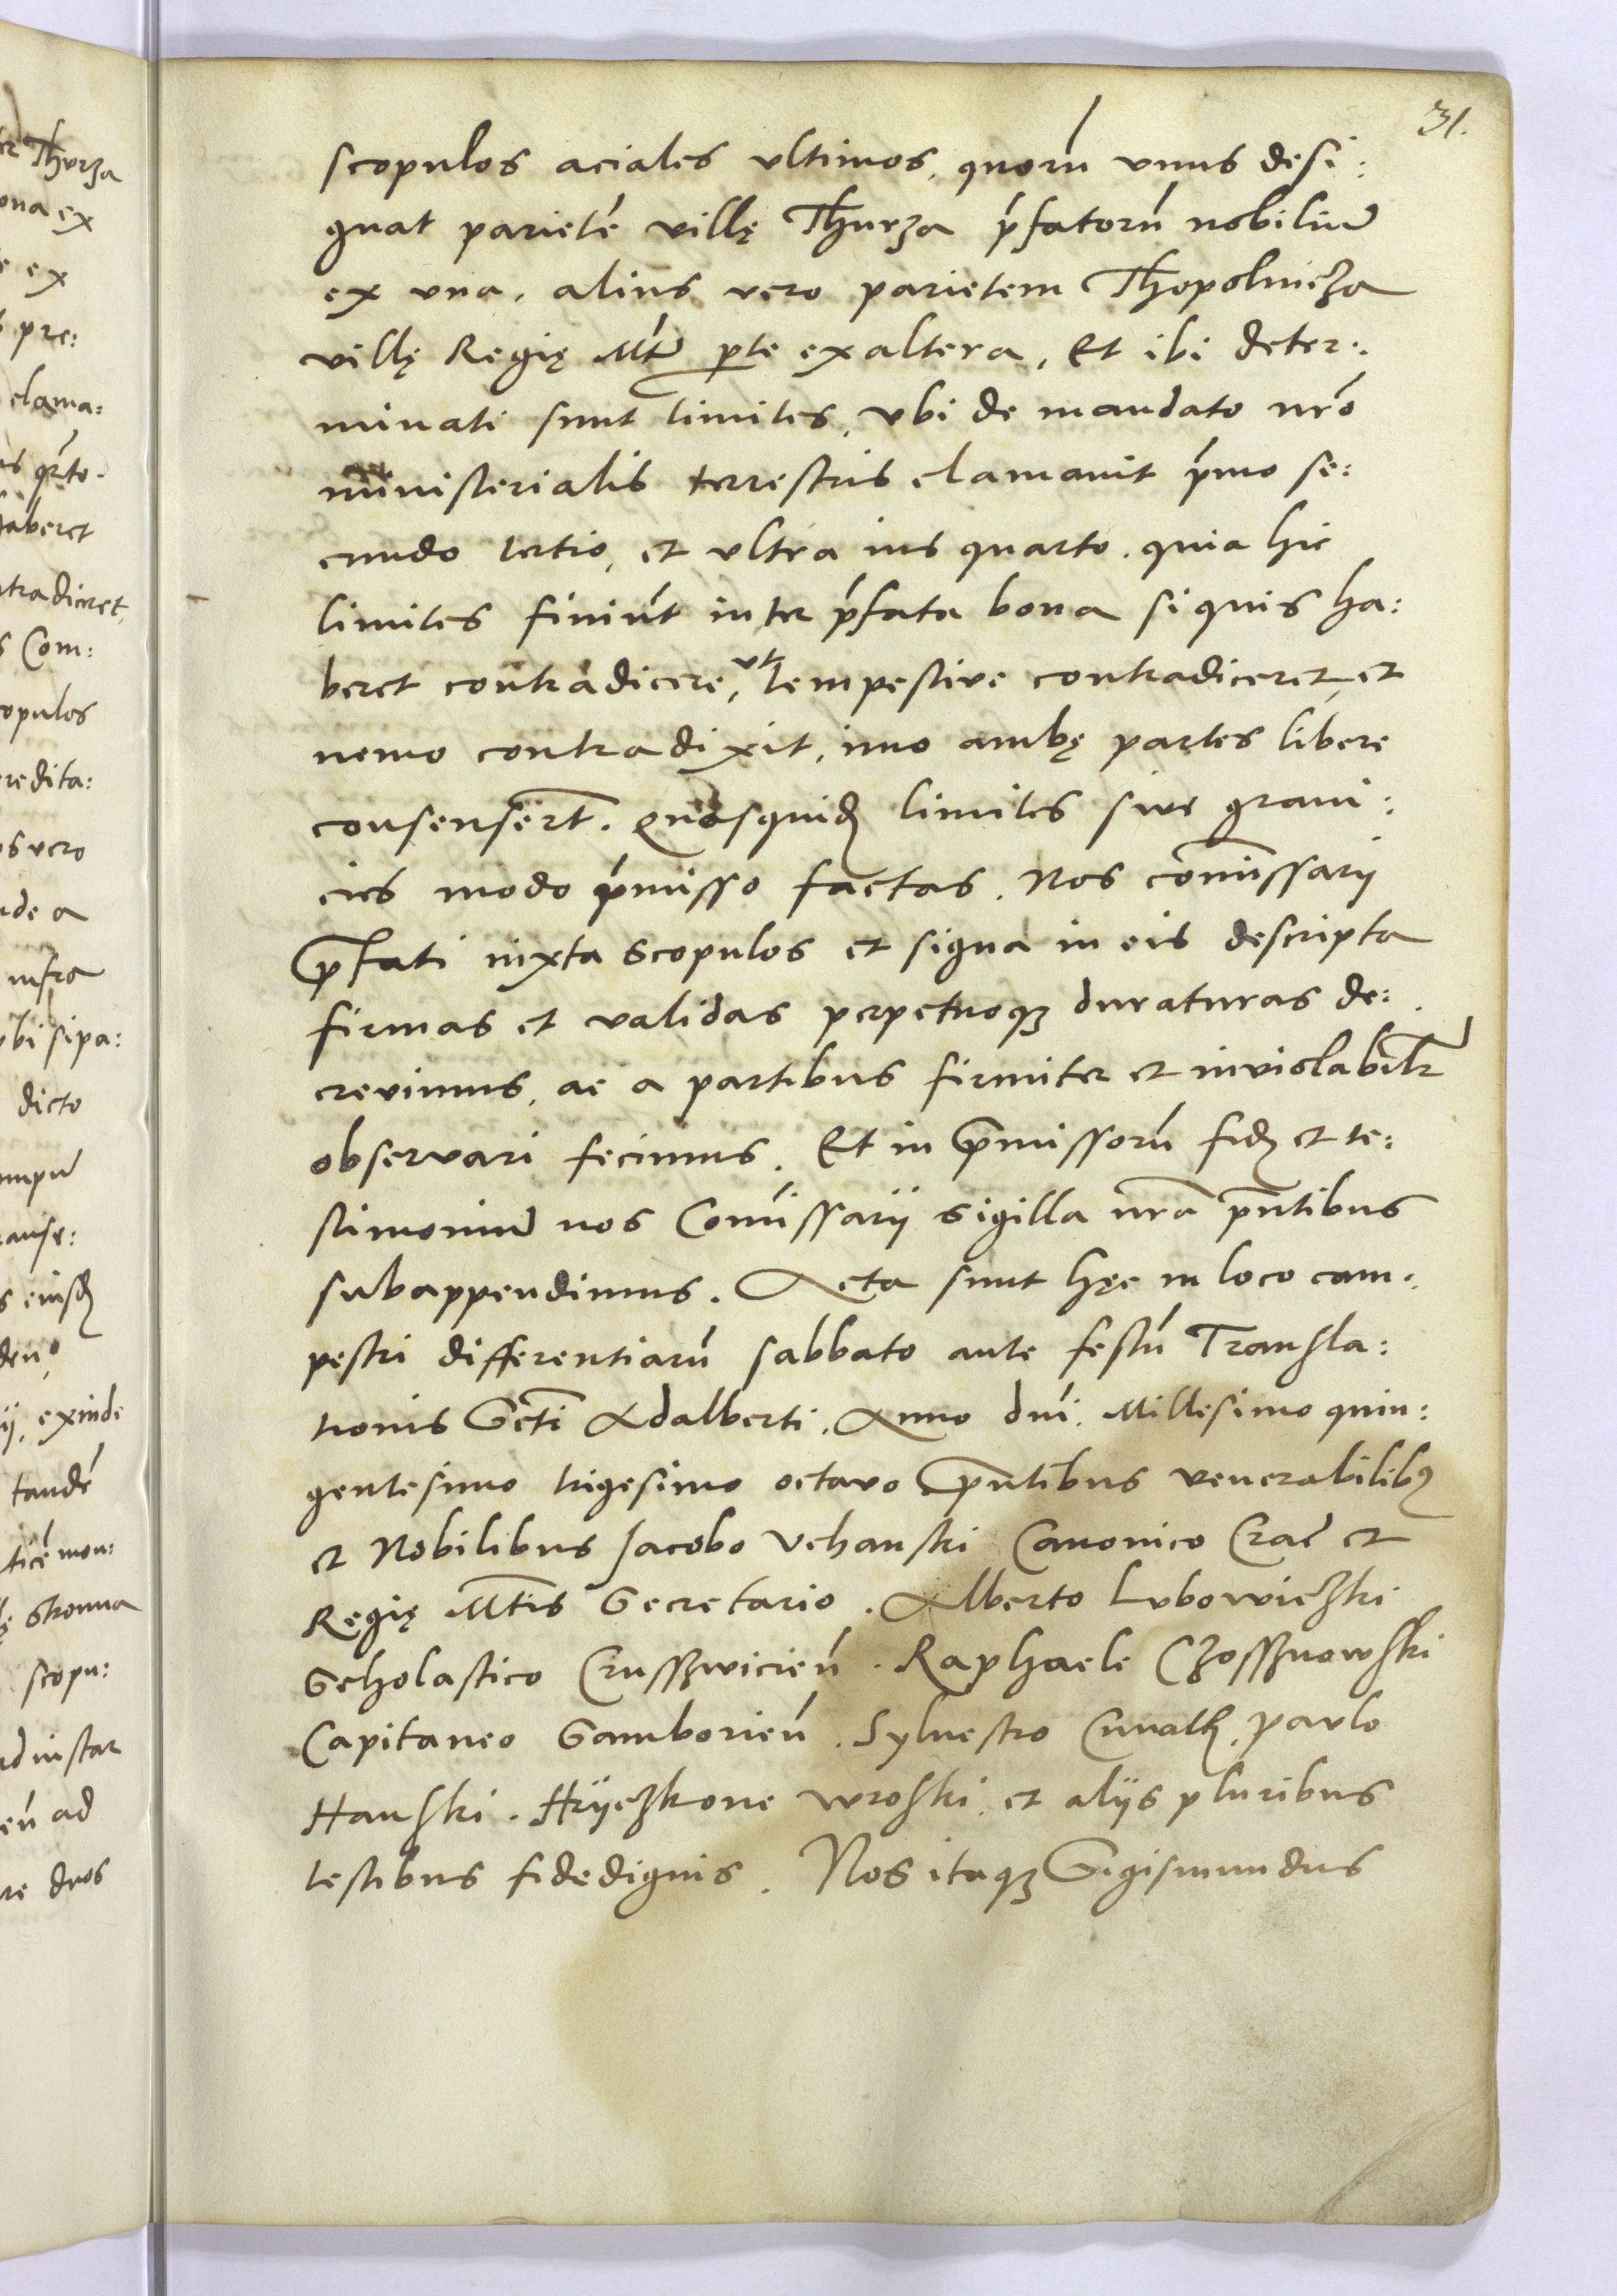 31.
scopulos aciales vltimos, quorū vnus desi:
gnat parietē villę Thurza p̄fatorū nobiliū
ex vna, alius vero parietem Thopolnicza
villę Regię Mtū p̱te ex altera, Et ibi deter:
minati sunt limites, vbi de mandato nr̄o
ministerialis terrestris clamauit p̄mo se:
cundo tertio, et vltra ius quarto, quia hic
limites finiūt inter p̄fata bona si quis ha:
beret contradicere, vt tempestiue contradiceret, et
nemo contradixit, imo ambę partes libere
consenserūt. Quosquidē limites siue grani:
cies modo p̄misso factas, Nos com̄issarij
p̄fati iuxta scopulos et signa in eis descripta
firmas et validas perpetuoqꝫ duraturas de:
creuimus, ac a partibus firmiter et inviolabilr̄
observari fecimus. Et in p̄missorū fidē et te:
stimoniū nos Com̄issarij sigilla nr̄a p̄ntibus
subappendimus. Acta sunt hęc in loco cam:
pestri differentiarū sabbato ante festū Transla:
tionis Sc̄ti Adalberti. Anno dn̄i. Millesimo quin:
gentesimo trigesimo octavo p̄ntibus venerabilibꝫ
et Nobilibus Jacobo Vchanski Canonico Crac̄ et
Regię Mtis Secretario. Alberto Lvbowieczki
Scholastico Crusswicien̄. Raphaele Czosssnowski
Capitaneo Samborien̄. Sylvestro Cunath, Pavlo
Hanski. Hryczkone wroski, et alijs pluribus
testibus fidedignis. Nos itaqꝫ Sigismundus
er Thvrza
vna ex
ex
pre:
clama:
haberet
ntradiceret,
Com:
copulos
eredita:
os vero
nde a
infra
vbi sipa:
dicto
eiusdē
ij, exinde
tandē
mon:
scopu:
ad instar
en̄ ad